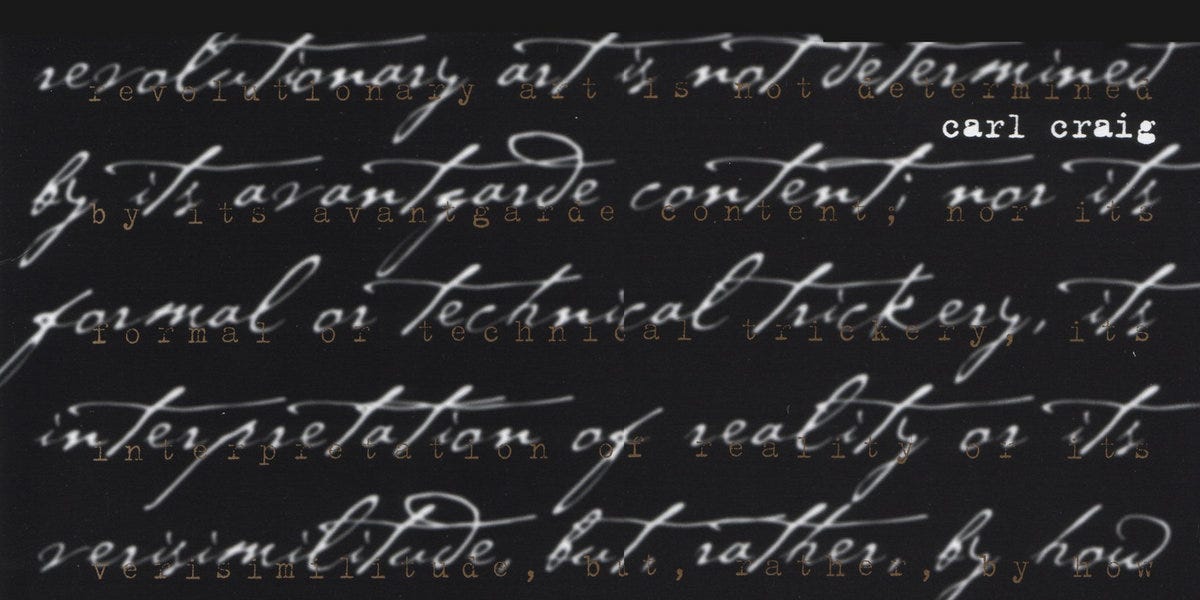 revolutionary art is not determined
revolutionary art is not determined
carl craig
by its avantgarde content; nor its
by its avantgarde content; nor its
formal or technical trickery, its
formal or technical trickery, its
interpretation of reality or its
interpretation of reality or its
verisimilitude, but, rather, by how
verisimilitude, but, rather, by how